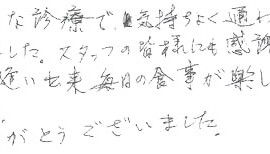 な診療で、気持ちよく通わ
した。スタッフの皆様にも感謝
違い出来毎日の食事が楽し
がとうございました。